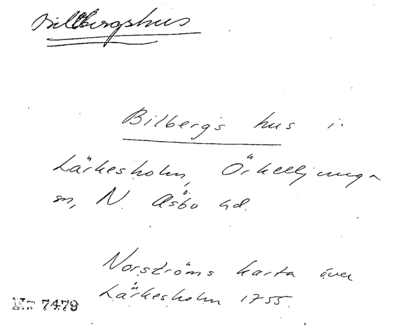 Billbergshus
Bilbergs hus i
Lärkesholm, Örkelljunga
sn, N. Åsbo hd.
Norströms karta över
Lärkesholm 1755.
Nr 7479